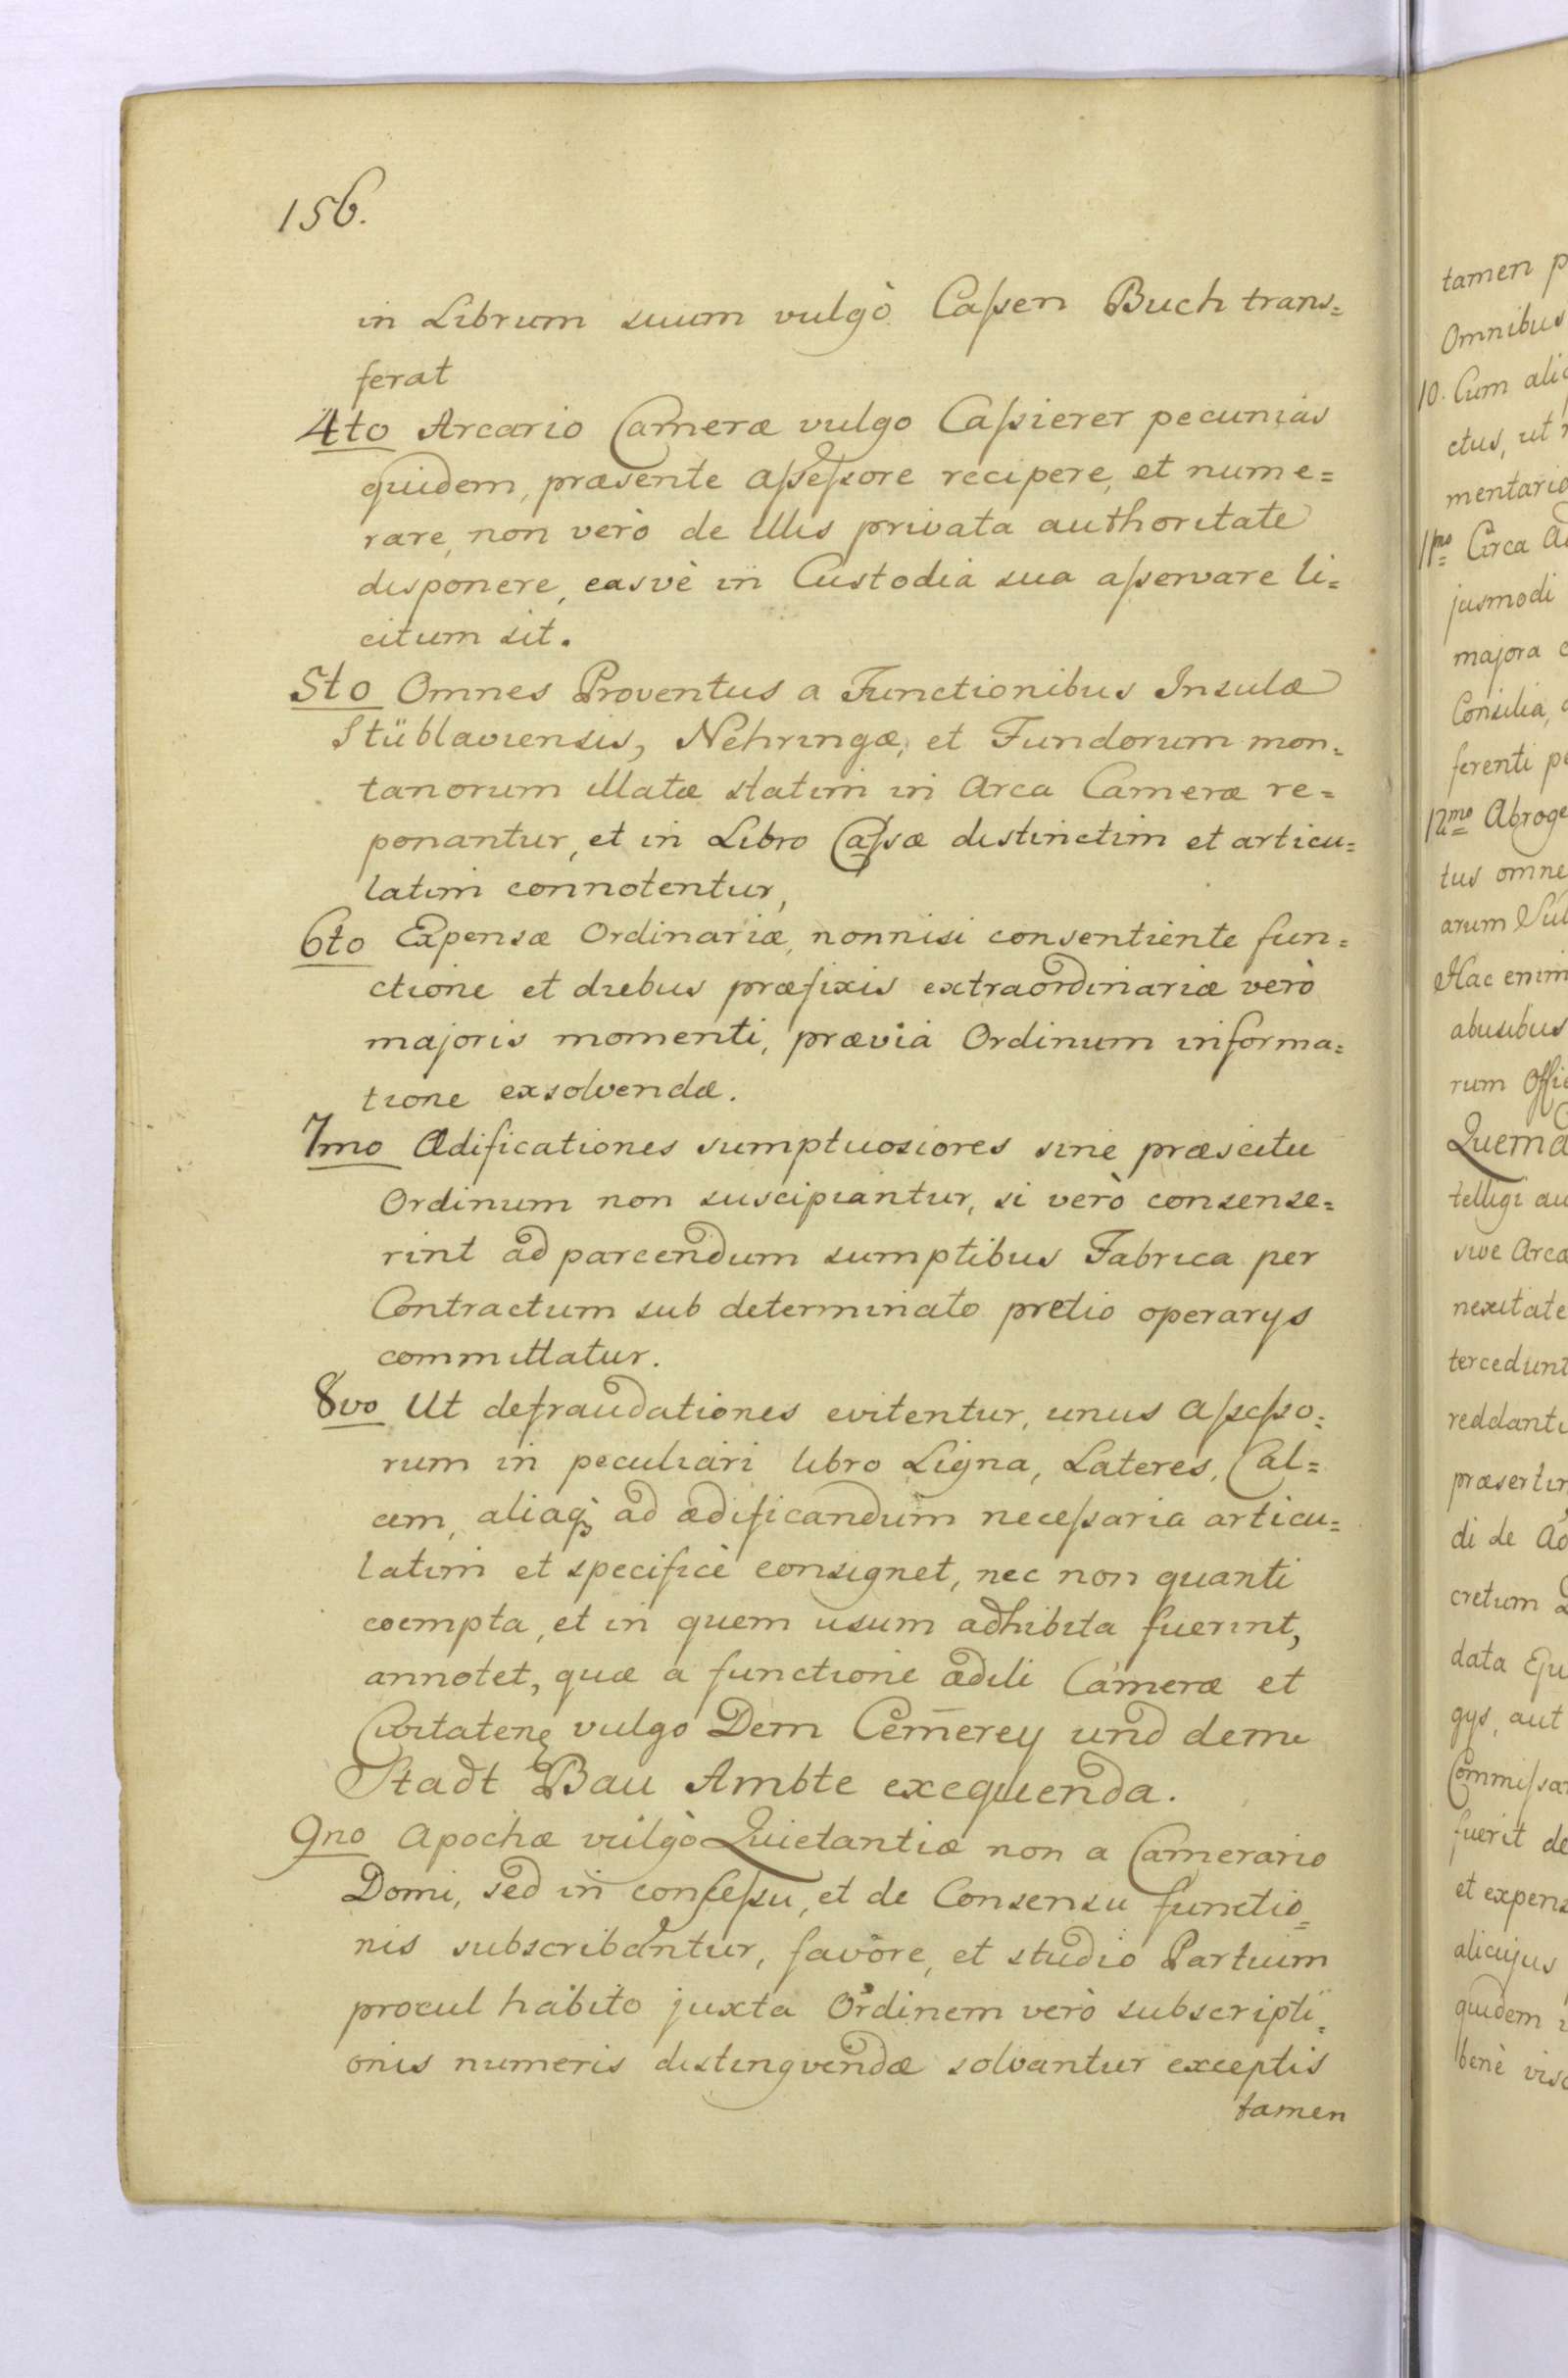 156.
in Librum suum vulgò Caſsen Buch trans=
ferat
4to Arcario Cameræ vulgo Caſsierer pecunias
quidem, præsente aſseſsore recipere, et nume=
rare, non verò de illis privata authoritate
disponere, easvè in Custodia sua aſservare li=
citum sit.
5to Omnes Proventus a Functionibus Insulæ
Stüblaviensis, Nehringæ, et Fundorum mon=
tanorum illatæ statim in Arca Cameræ re=
ponantur, et in Libro Caſsæ distinctim et articu=
latim connotentur,
6to Expensæ Ordinariæ, nonnisi consentiente fun=
ctione et diebus præfixis extraordinariæ verò
majoris momenti, prævia Ordinum informa=
tione exsolvendæ.
7mo Ædificationes sumptuosiores sine præscitu
Ordinum non suscipiantur, si verò consense=
rint ad parcendum sumptibus Fabrica per
Contractum sub determinato pretio operarys
committatur.
8vo Ut defraudationes evitentur, unus Aſseſso=
rum in peculiari libro Ligna, Lateres, Cal=
cem, aliaqꝫ ad ædificandum neceſsaria articu=
latim et specificè consignet, nec non quanti
coempta, et in quem usum adhibita fuerint,
annotet, quæ a functione ædili Cameræ et
vulgo Dem Cem̄erey und dem
Stadt Bau Ambte exequenda.
9no Apochæ vulgò Quietantiæ non a Camerario
Domi, sed in conſeſsu, et de Consensu functio=
nis subscribantur, favore, et studio Partium
procul habito juxta Ordinem verò subscripti=
onis numeris distingvendæ solvantur exceptis
tamen
tamen
Omnibus
10. Cum
ctus, ut
11mo Circa
jusmodi
majora
Consilia,
ferenti
12mo
tus
arum
Hac enim
abusibus
rum
telligi
sive
di de
cretum
data
gys, aut
fuerit
et
alicujus
quidem
benè